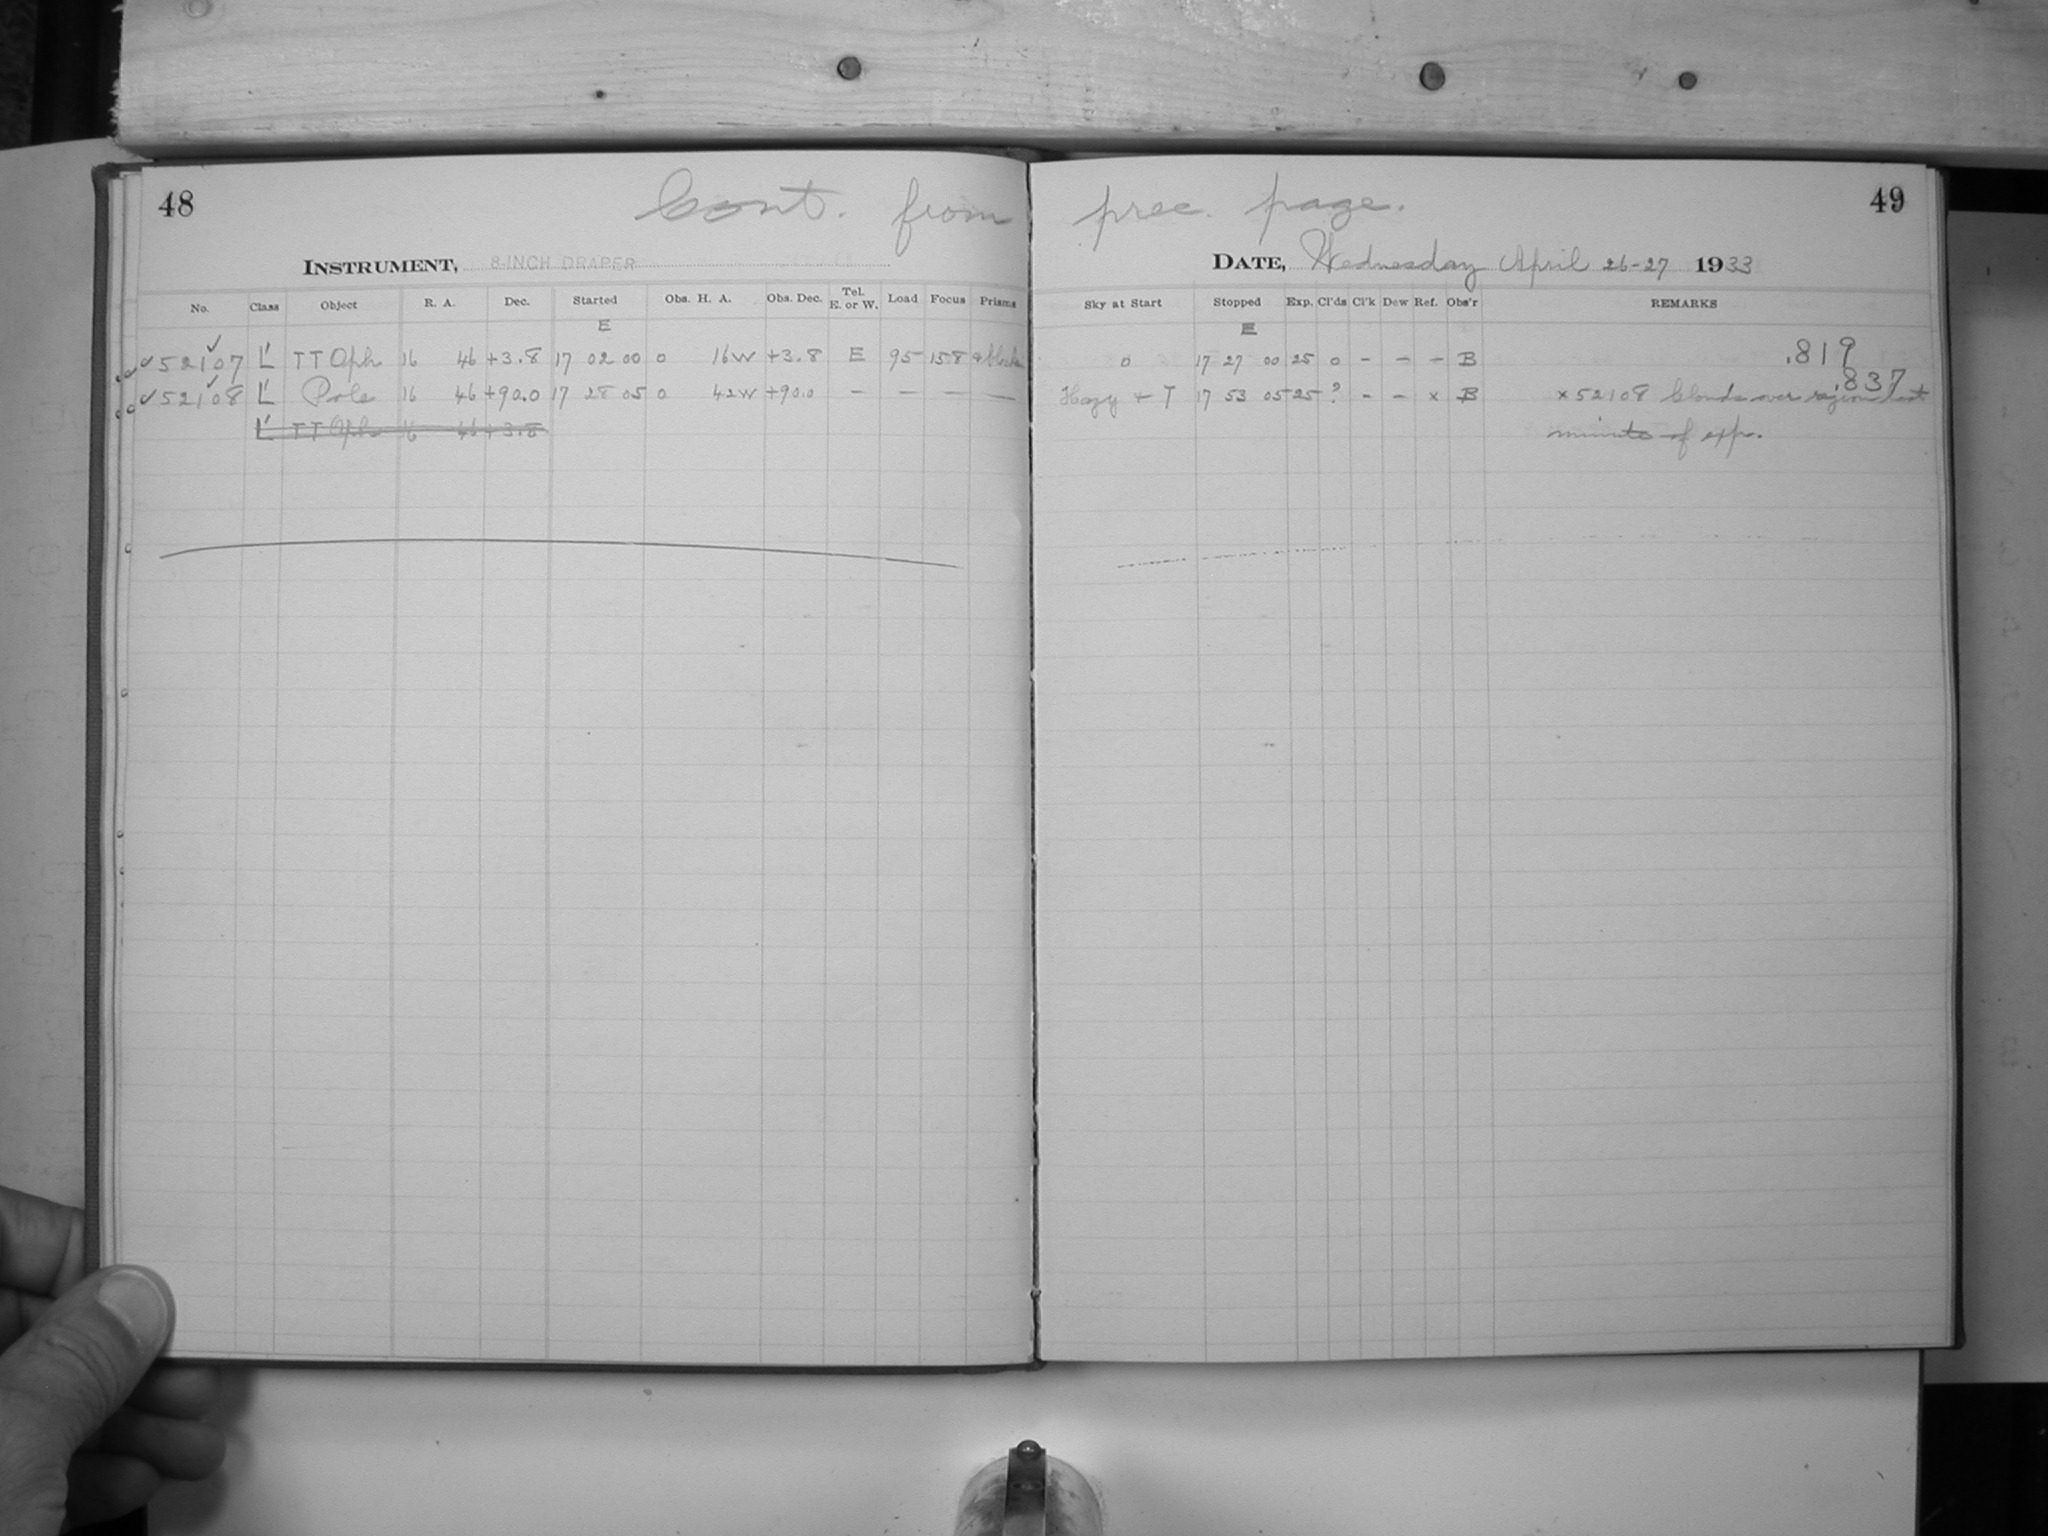 48
Cont. from prec. page.
49
INSTRUMENT, 8-INCH DRAPER
DATE, Wednesday April 26-27 1933
No. Class Object R. A. Dec. Started Obs. H. A. Obs. Dec. Tel. E. or W. Load Focus Prisms Sky at Start Stopped Exp. Cl'ds Cl'k Dew Ref. Obs'r REMARKS
E E
✓52107 L' TT Oph 16 46 +3.8 17 02 00 0 16W +3.8 E 95 158 0 17 27 00 25 0 - - - B .819
✓52108 L' Pole 16 46 +90.0 17 28 05 0 42W +90.0 - - - - Hazy + T 17 53 05 25 ? - - x B .837
x 52108 Clouds over region last
L' TT Oph 16 46 +3.8 minute of exp.